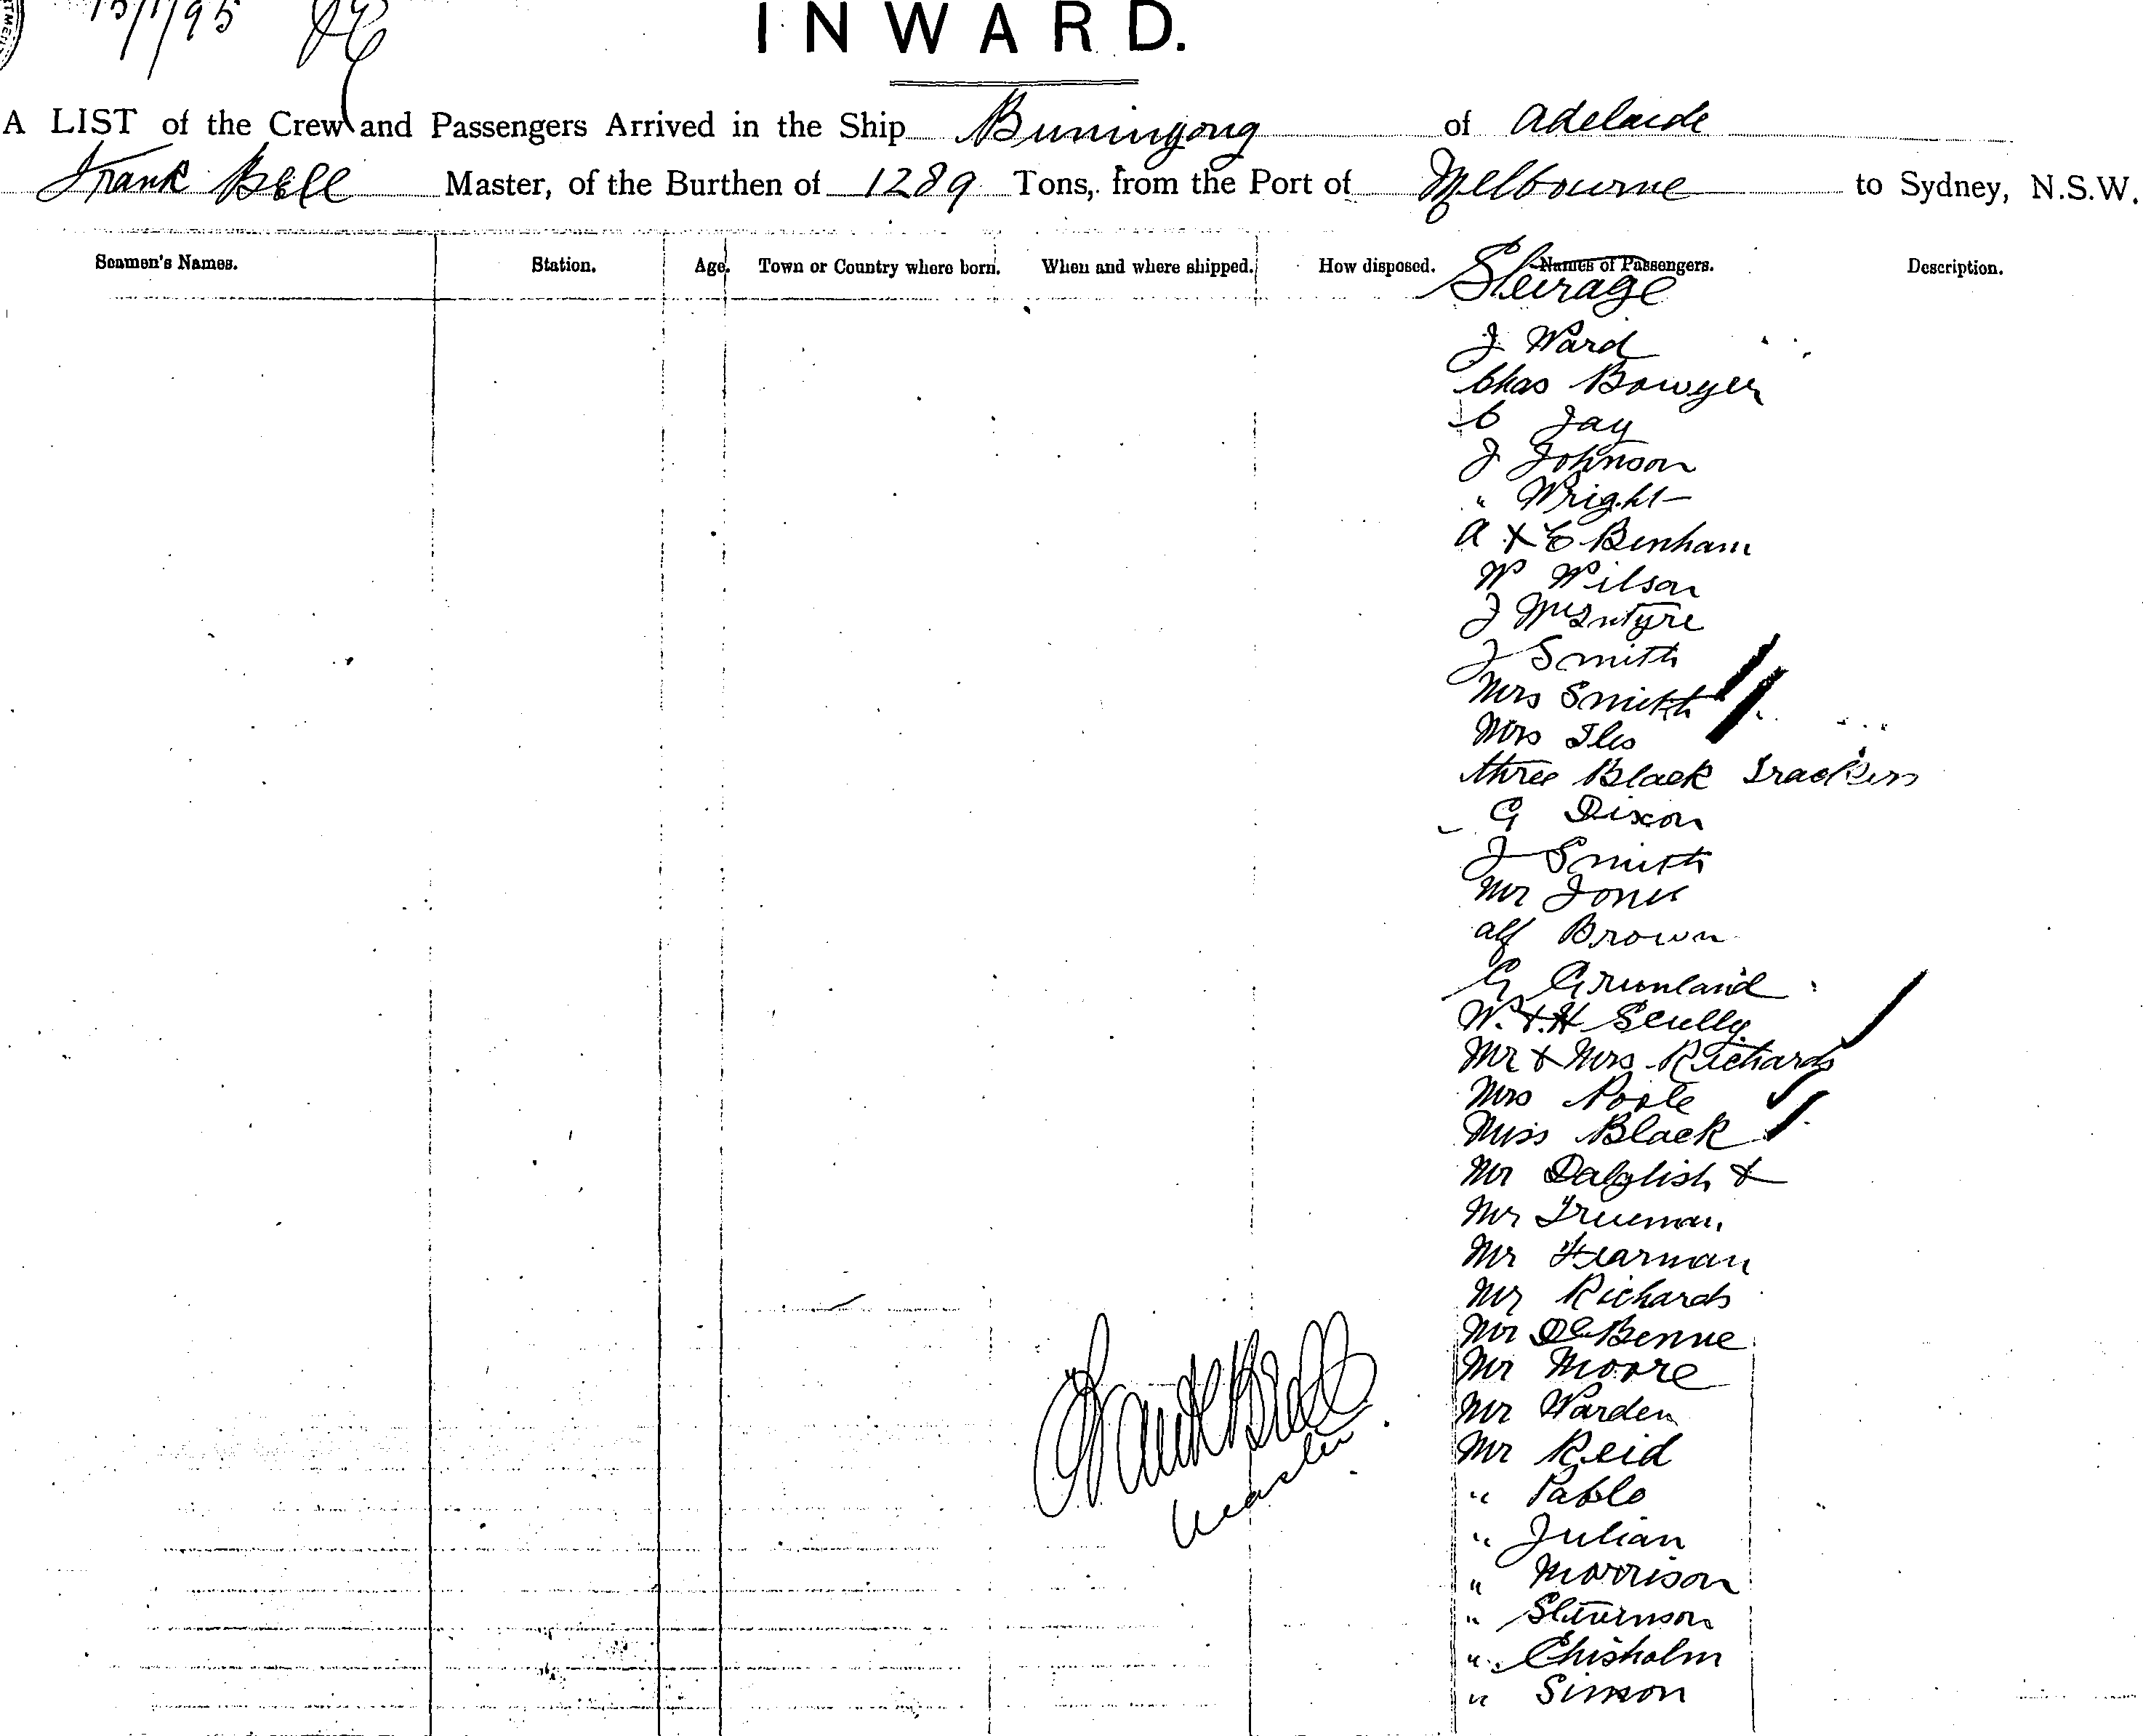 15/1/95
INWARD.
A LIST of the Crew and Passengers Arrived in the Ship Buninyong of Adelaide
Frank Bell Master, of the Burthen of 1289 Tons, from the Port of Melbourne to Sydney, N.S.W.
Seamen's Names. Station. Age. Town or Country where born. When and where shipped. How disposed. Names of Passengers. Description.
Steirage
J Ward
Chas Bowyer
C Jay
J Johnson
" Wright
A & E Benham
W Wilson
J McIntyre
J Smith
Mrs Smith
Mrs Iles
three Black Trackers
G Dixon
J Smith
Mr Jones
Alf Brown
G
W. & H Scully
Mr & Mrs Richards
Mrs Poole
Miss Black
Mr Dalglish &
Mr Trueman
Mr Fearman
Mr Richards
Mr
Mr Moore
Mr Warden
Mr Reid
" Pablo
" Julian
" Morrison
" Stevenson
" Chisholm
" Simson
Frank Bell
Master